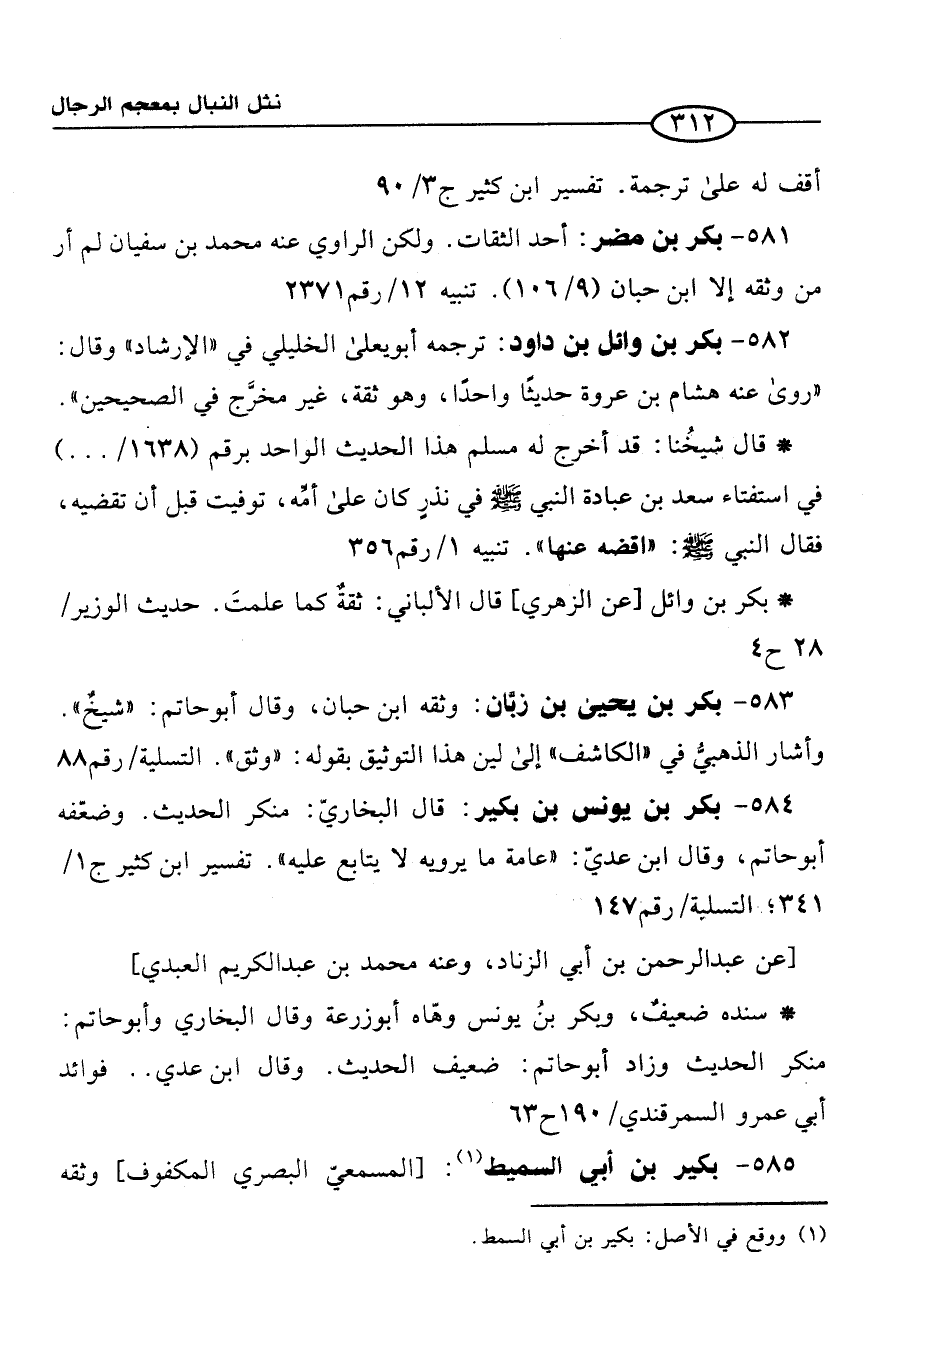 نثل النبال بمعجم الرجال
٣١٢
أقف له علىٰ ترجمة. تفسير ابن كثير ج٣/ ٩٠
٥٨١- بكر بن مضر: أحد الثقات. ولكن الراوي عنه محمد بن سفيان لم أر
من وثقه إلا ابن حبان (٩/ ١٠٦). تنبيه ١٢/ رقم٢٣٧١
٥٨٢- بكر بن وائل بن داود: ترجمه أبويعلىٰ الخليلي في «الإرشاد» وقال:
«روىٰ عنه هشام بن عروة حديثًا واحدًا، وهو ثقة، غير مخرَّج في الصحيحين».
* قال شيخُنا: قد أخرج له مسلم هذا الحديث الواحد برقم (١٦٣٨/ ...)
في استفتاء سعد بن عبادة النبي ﷺ في نذرٍ كان علىٰ أمِّه، توفيت قبل أن تقضيه،
فقال النبي ﷺ: «اقضه عنها». تنبيه ١/ رقم٣٥٦
* بكر بن وائل [عن الزهري] قال الألباني: ثقةٌ كما علمتَ. حديث الوزير/
٢٨ ح٤
٥٨٣- بكر بن يحيىٰ بن زبَّان: وثقه ابن حبان، وقال أبوحاتم: «شيخٌ».
وأشار الذهبيُّ في «الكاشف» إلىٰ لين هذا التوثيق بقوله: «وثق». التسلية/ رقم٨٨
٥٨٤- بكر بن يونس بن بكير: قال البخاريّ: منكر الحديث. وضعّفه
أبوحاتم، وقال ابن عديّ: «عامة ما يرويه لا يتابع عليه». تفسير ابن كثير ج١/
٣٤١؛ التسلية/ رقم١٤٧
[عن عبدالرحمن بن أبي الزناد، وعنه محمد بن عبدالكريم العبدي]
* سنده ضعيفٌ، وبكر بنُ يونس وهّاه أبوزرعة وقال البخاري وأبوحاتم:
منكر الحديث وزاد أبوحاتم: ضعيف الحديث. وقال ابن عدي.. فوائد
أبي عمرو السمرقندي/ ١٩٠ح٦٣
٥٨٥- بكير بن أبي السميط(١): [المسمعيّ البصري المكفوف] وثقه
(١) ووقع في الأصل: بكير بن أبي السمط.